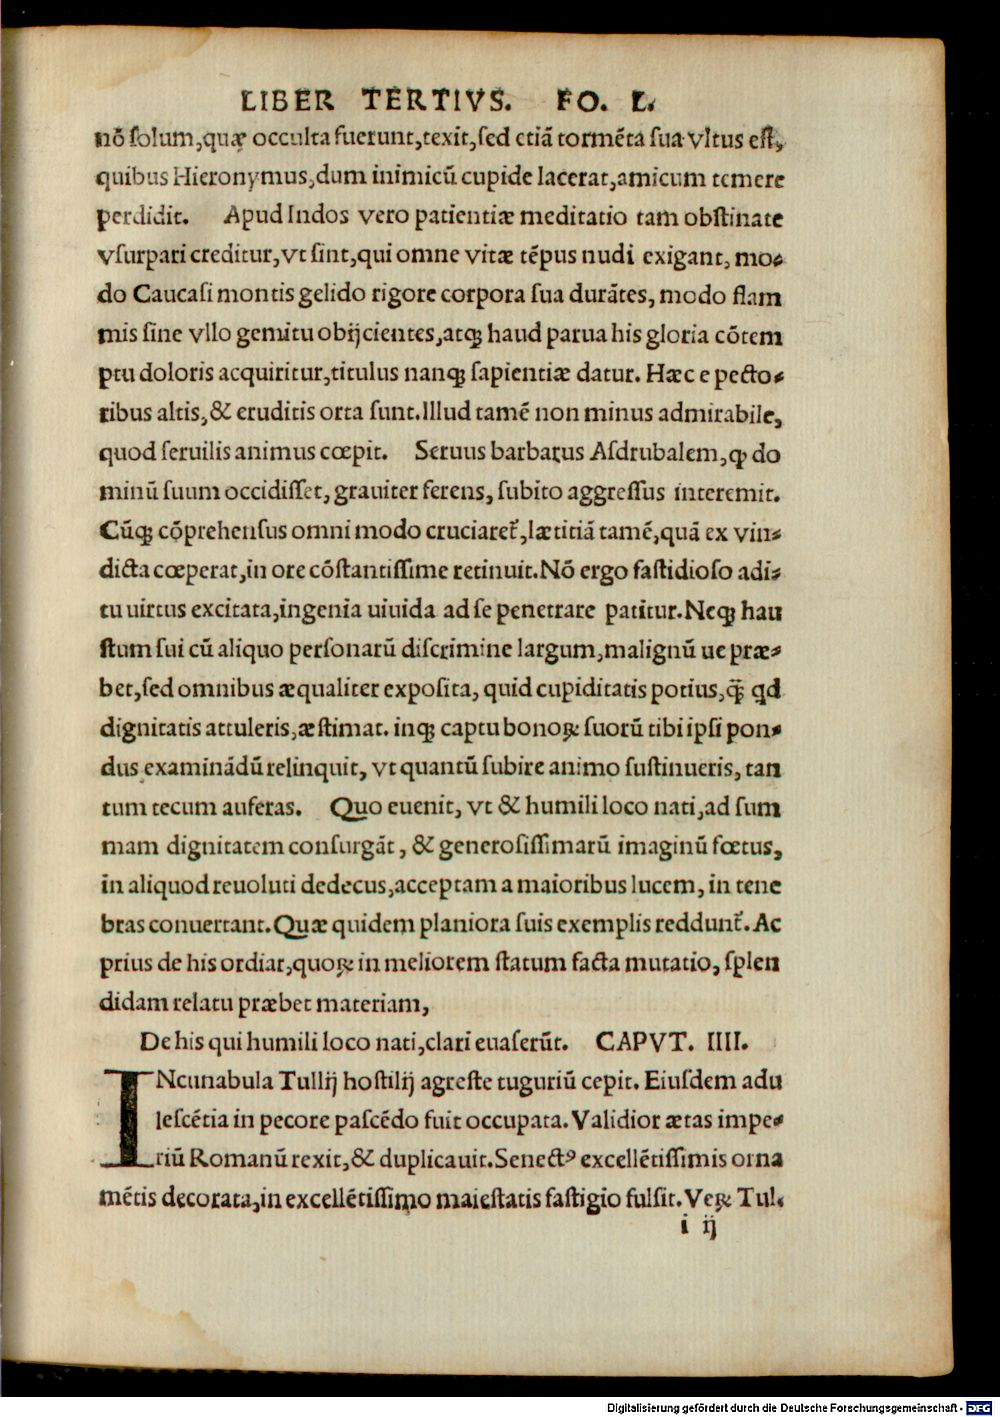 LIBER TERTIVS. FO. L.
nō solum,quæ occulta fuerunt,texit,sed etiā tormēta sua vltus est,
quibus Hieronymus,dum inimicū cupide lacerat,amicum temere
perdidit. Apud Indos vero patientiæ meditatio tam obstinate
vsurpari creditur,vt sint,qui omne vitæ tēpus nudi exigant, mo-
do Caucasi montis gelido rigore corpora sua durātes, modo flam
mis sine vllo gemitu obijcientes,atqꝫ haud parua his gloria cōtem
ptu doloris acquiritur,titulus nanqꝫ sapientiæ datur. Hæc e pecto-
ribus altis,& eruditis orta sunt.Illud tamē non minus admirabile,
quod seruilis animus cœpit. Seruus barbarus Asdrubalem,ꝙ do
minū suum occidisset, grauiter ferens, subito aggressus interemit.
Cūqꝫ cōprehensus omni modo cruciaret᷑,lætitiā tamē,quā ex vin-
dicta cœperat,in ore cōstantissime retinuit.Nō ergo fastidioso adi-
tu uirtus excitata,ingenia uiuida ad se penetrare patitur.Neqꝫ hau
stum sui cū aliquo personarū discrimine largum,malignū ue præ-
bet,sed omnibus æqualiter exposita, quid cupiditatis potius,q̄ꝫ qd
dignitatis attuleris,æstimat. inqꝫ captu bonoꝝ suorū tibi ipsi pon-
dus examinādū relinquit, vt quantū subire animo sustinueris, tan
tum tecum auferas. Quo euenit, vt & humili loco nati,ad sum
mam dignitatem consurgāt, & generosissimarū imaginū fœtus,
in aliquod reuoluti dedecus,acceptam a maioribus lucem, in tene
bras conuertant.Quæ quidem planiora suis exemplis reddunt᷑. Ac
prius de his ordiar,quoꝝ in meliorem statum facta mutatio, splen
didam relatu præbet materiam,
De his qui humili loco nati,clari euaserūt. CAPVT. IIII.
INcunabula Tullij hostilij agreste tuguriū cepit. Eiusdem adu
lescētia in pecore pascēdo fuit occupata. Validior ætas impe-
riū Romanū rexit,& duplicauit.Senectꝰ excellētissimis orna
mētis decorata,in excellētissimo maiestatis fastigio fulsit. Veꝝ Tul-
i ij
Digitalisierung gefördert durch die Deutsche Forschungsgemeinschaft - DFG